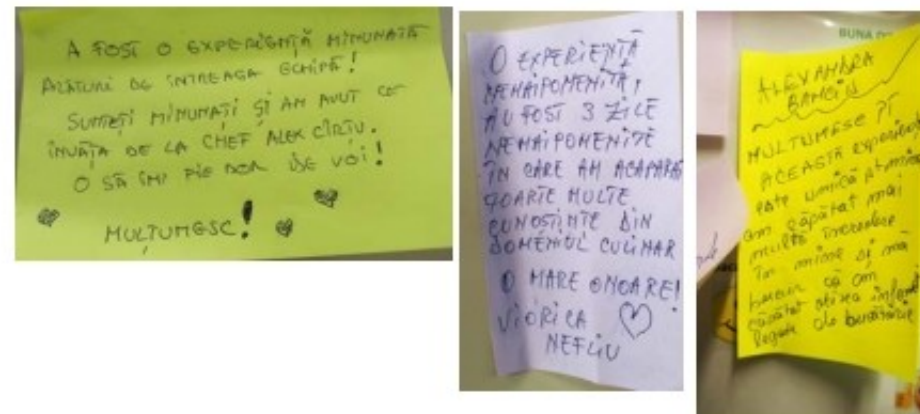 A FOST O EXPERIENȚĂ MINUNATĂ
ALĂTURI DE ÎNTREAGA ECHIPĂ!
SUNTEȚI MINUNAȚI ȘI AM AVUT CE
ÎNVĂȚA DE LA CHEF ALEX CÎRȚU.
O SĂ ÎMI FIE DOR DE VOI!
MULȚUMESC!
O EXPERIENȚĂ
NEMAIPOMENITĂ,
AU FOST 3 ZILE
NEMAIPOMENITE
ÎN CARE AM ACAPARAT
FOARTE MULTE
CUNOSTINTE DIN
DOMENIUL CULINAR
O MARE ONOARE!
VIORICA
NEFLIU
BUNA
ALEXANDRA
MULTUMESC PT
ACEASTĂ
este unică pt mine
am căpătat mai
multă încredere
în mine și mă
bucur că am
căpătat atitea
legate de bucătărie